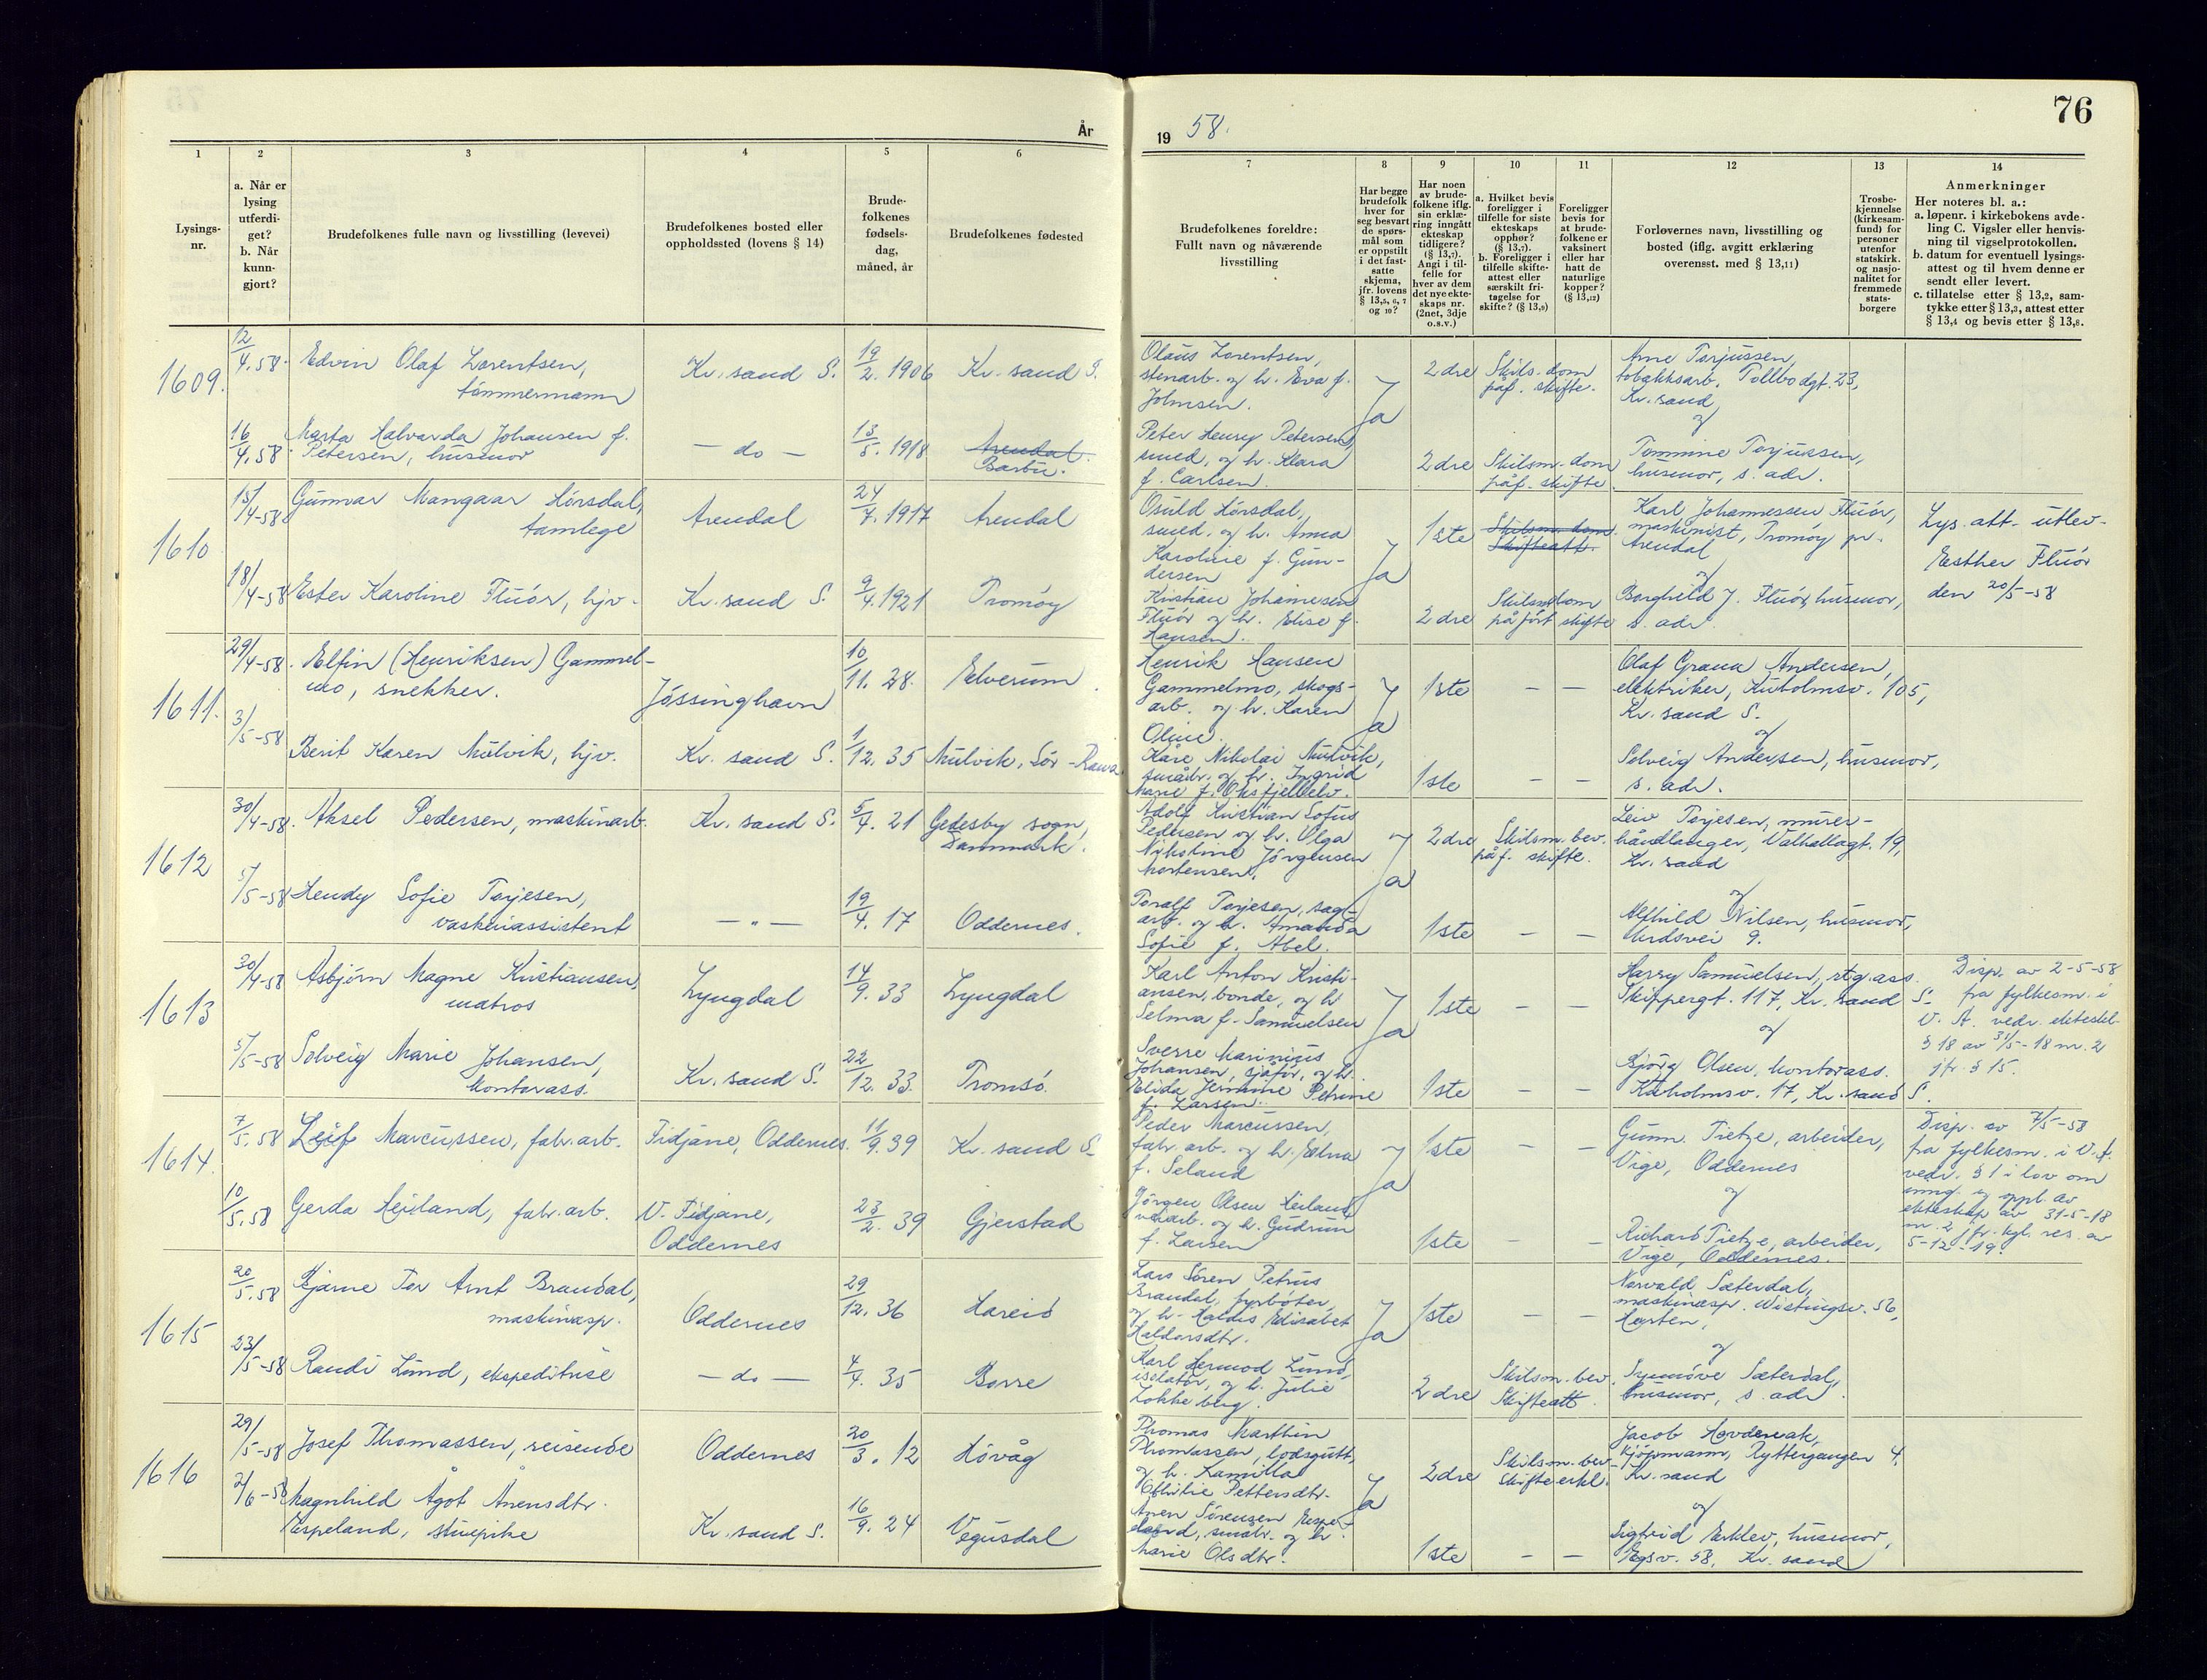 År
1958.
76
1
2
3
4
5
6
Lysings-
nr.
a. Når er
lysing
utferdi-
get?
b. Når
kunn-
gjort?
Brudefolkenes fulle navn og livsstilling (levevei)
Brudefolkenes bosted eller
oppholdssted (lovens § 14)
Brude-
folkenes
fødsels-
dag,
måned, år
Brudefolkenes fødested
7
8
9
10
11
12
13
14
Brudefolkenes foreldre:
Fullt navn og nåværende
livsstilling
Har begge
brudefolk
hver for
seg besvart
de spørs-
mål som
er oppstilt
i det fast-
satte
skjema,
jfr. lovens
§ 13,5, 6, 7
og 10?
Har noen
av brude-
folkene iflg.
sin erklæ-
ring inngått
ekteskap
tidligere?
(§ 13,7).
Angi i til-
felle for
hver av dem
det nye ekte-
skaps nr.
(2net, 3dje
o.s.v.)
a. Hvilket bevis
foreligger i
tilfelle for siste
ekteskaps
opphør?
(§ 13,7).
b. Foreligger i
tilfelle skifte-
attest eller
særskilt fri-
tagelse for
skifte? (§ 13,9)
Foreligger
bevis for
at brude-
folkene er
vaksinert
eller har
hatt de
naturlige
kopper?
(§ 13,12)
Forlovernes navn, livsstilling og
bosted (iflg. avgitt erklæring
overensst. med § 13,11)
Trosbe-
kjennelse
(kirkesam-
fund) for
personer
utenfor
statskirk.
og nasjo-
nalitet for
fremmede
stats-
borgere
Anmerkninger
Her noteres bl. a.:
a. løpenr. i kirkebokens avde-
ling C. Vigsler eller henvis-
ning til vigselprotokollen.
b. datum for eventuell lysings-
attest og til hvem denne er
sendt eller levert.
c. tillatelse etter § 13,2, sam-
tykke etter § 13,3, attest etter
§ 13,4 og bevis etter § 13,8.
1609.
12/4.58.
Edvin Olaf Lorentsen,
tømmermann
Kr. sand S.
19/2. 1906
Kr. sand S.
Olaus Lorentsen,
stenarb. og h. Eva f.
Johnsen.
Ja
2dre
Skils. dom
påf. skifte.
Arne Torjussen,
tobakksarb. Tollbodgt. 23,
Kr. sand
og
16/4.58
Marta Halvarda Johansen f.
Petersen, husmor
- do -
13/5. 1918
Arendal.
Barbu.
Peter Henry Petersen,
smed, og h. Klara
f. Carlsen.
2dre
Skilsm. dom
påf. skifte
Tommine Torjussen,
husmor, s. adr.
1610
15/4-58
Gunnar Mangaar Hørsdal,
tannlege
Arendal
24/7. 1917
Arendal
Osuld Hørsdal,
smed, og h. Anna
Karoline f. Gun-
dersen
Ja
1ste
Skilsm. dom
Skifteatt.
Karl Johannessen Fluór,
maskinist, Tromøy pr.
Arendal
og
Lys. att. utlev.
Esther Fluór
den 20/5-58
18/4-58
Ester Karoline Fluór, hjv.
Kr. sand S.
9/4. 1921
Tromøy
Kristian Johannesen
Fluór og h. Elise f.
Hansen.
2dre
Skilsm. dom
påført skifte
Borghild J. Fluór, husmor,
s. adr.
1611.
29/4-58.
Elfin (Henriksen) Gammel-
mo, snekker.
Jøssinghavn
10/11. 28.
Elverum.
Henrik Hansen
Gammelmo, skogs-
arb. og h. Karen
Oline.
Ja
1ste
- -
Olaf Grana Andersen,
elektriker, Kuholmsv. 105,
Kr. sand S.
og
3/5-58
Berit Karen Mulvik, hjv.
Kr. sand S.
1/12. 35
Mulvik, Sør-Rana
Kåre Nikolai Mulvik,
småbr. og h. Ingrid
Marie f. Oksfjellelv.
1ste
- -
Solveig Andersen, husmor,
s. adr.
1612
30/4-58.
Aksel Pedersen, maskinarb.
Kr. sand S.
5/4. 21
Gedesby sogn,
Danmark.
Adolf Kristian Sofus
Pedersen og h. Olga
Nikoline Jörgensen
Mortensen.
Ja
2dre
Skilsm. bev.
påf. skifte.
Leiv Torjesen, murer-
håndlanger, Valhallagt. 19,
Kr. sand
og
5/5-58
Hendy Sofie Torjesen,
vaskeriassistent
- " -
19/4. 17
Oddernes.
Toralf Torjesen, sag-
arb. og h. Amanda
Sofie f. Abel.
1ste
- -
Alfhild Nilsen, husmor,
Urdsvei 9.
1613
30/4-58
Asbjørn Magne Kristiansen,
matros
Lyngdal
14/9. 33
Lyngdal
Karl Anton Kristi-
ansen, bonde, og h.
Selma f. Samuelsen
Ja
1ste
- -
Harry Samuelsen, rtg. ass.
Skippergt. 117, Kr. sand S.
og
Disp. av 2-5-58
fra fylkesm. i
V. A. vedr. ekteskl.
§ 18 av 31/5-18 nr. 2
jfr. § 15.
5/5-58
Solveig Marie Johansen,
kontorass.
Kr. sand S.
22/12. 33.
Tromsø.
Sverre Marinius
Johansen, sjåfør, og h.
Elida Jermine Petrine
f. Larsen.
1ste
- -
Bjørg Olsen, kontorass.
Kuholmsv. 17, Kr. sand S.
1614.
7/5.58
Leif Marcussen, fabr. arb.
Fidjane, Oddernes.
11/9. 39
Kr. sand S.
Peder Marcussen,
fabr. arb. og h. Elna
f. Seland
Ja
1ste
- -
Gunn. Tietze, arbeider,
Vige, Oddernes
og
Disp. av 7/5-58
fra fylkesm. i V. A.
vedr. § 1 i lov om
inng. og oppl. av
ekteskap av 31-5-18
nr. 2 jfr. kgl. res. av
5-12-19.
10/5.58
Gerda Heiland, fabr. arb.
V. Fidjane,
Oddernes
23/2. 39
Gjerstad
Jörgen Olsen Heiland,
og h. Gudrun
f. Larsen
1ste
- -
Richard Tietze, arbeider,
Vige, Oddernes.
1615
20/5.58
Bjarne Tor Arnt Brandal,
maskinasp.
Oddernes
29/12. 36
Hareid
Lars Sören Petrus
Brandal, fyrbøter,
og h. Haldis Elisabet
Haldorsdtr.
Ja
1ste
- -
Norvald Sæterdal,
maskinasp. Wistingsv. 56,
Horten,
og
23/5-58
Randi Lund, ekspeditrise
- do -
4/4. 35
Borre
Karl Hermod Lund,
isolatør, og h. Julie
Løkkeberg.
2dre
Skilsm. bev.
Skifteatt.
Synnøve Sæterdal,
husmor, s. adr.
1616
29/5-58
Josef Thomassen, reisende
Oddernes
20/3. 12
Høvåg
Thomas Marthin
Thomassen, losgutt,
og h. Kamilla
Othilie Pettersdtr.
Ja
2dre
Skilsm. bev.
Skifteerkl.
Jacob Hovdenak,
kjøpmann, Ryttergangen 4,
Kr. sand
og
2/6-58
Magnhild Ågot Ånensdtr.
Espeland, stuepike
Kr. sand S.
16/9. 24
Vegusdal
Anen Sørensen Espe-
land, småbr. og h.
Marie Olsdtr.
1ste
- -
Sigfrid Erklev, husmor,
Egsv. 58, Kr. sand